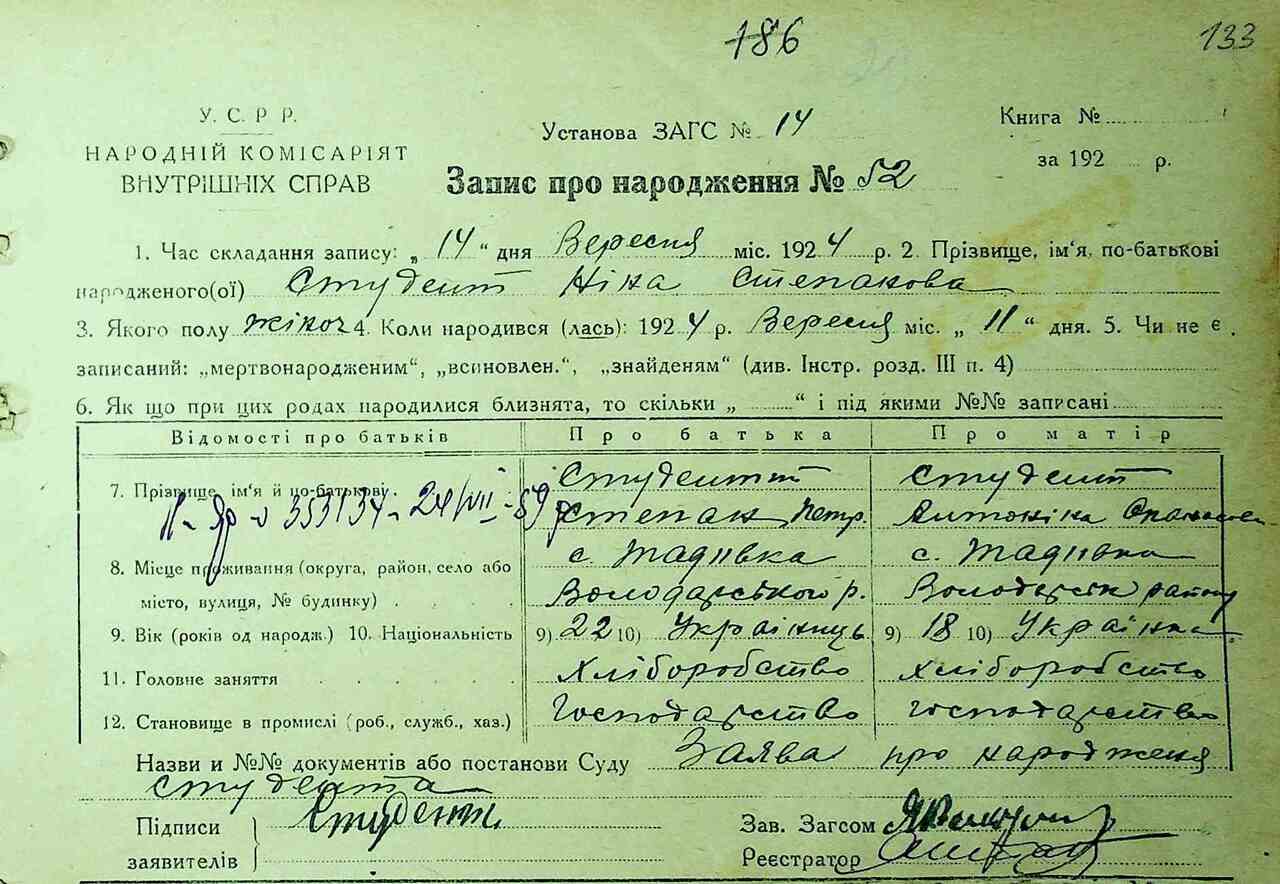 186
133
У. С. Р Р.
НАРОДНІЙ КОМІСАРІЯТ
ВНУТРІШНІХ СПРАВ
Установа ЗАГС № 14
Запис про народження № 52
Книга №
за 192 р.
1. Час складання запису: „ 14 “ дня Вересня міс. 1924 р. 2. Прізвище, ім‘я, по-батькові
народженого(ої) Студент Ніна Степанова
3. Якого полу жіноч 4. Коли народився (лась): 1924 р. Вересня міс. „ 11 “ дня. 5. Чи не є
записаний: „мертвонародженим“, „всиновлен.“, „знайденям“ (див. Інстр. розд. III п. 4)
6. Як що при цих родах народилися близнята, то скільки „ “ і під якими №№ записані
Відомості про батьків Про батька Про матір
7. Прізвище, ім‘я й по-батькові. Студент Студент
353134 - 24/VII - 59 Степан Петр. Антоніна
с. Тадіївка с. Тадіївка
8. Місце проживання (округа, район, село або
місто, вулиця, № будинку) Володарського р. Володарськ району
9. Вік (років од народж.) 10. Національність 9) 22 10) Українць 9) 18 10) Українка
11. Головне заняття Хліборобство хліборобство
12. Становище в промислі (роб., служб., хаз.) Господарство господарство
Назви и №№ документів або постанови Суду Заява про народженя
студента
Підписи Студент Зав. Загсом
заявителів Реєстратор